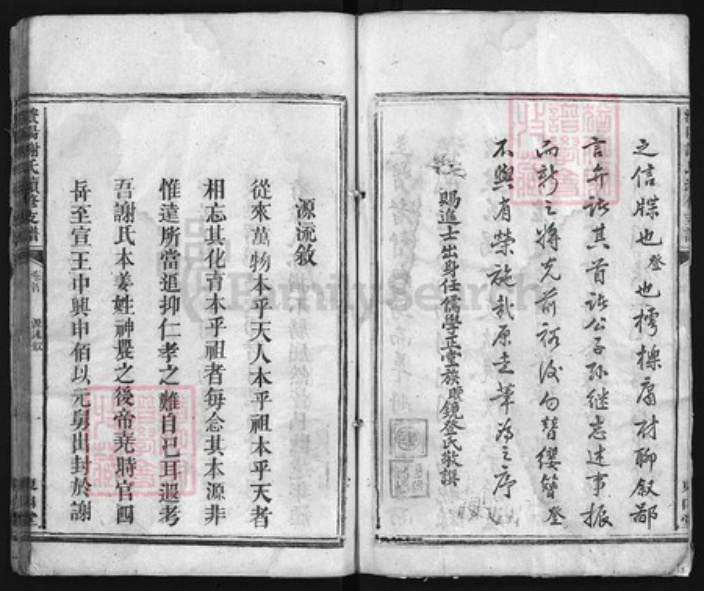 之信牒也登也樗櫟庸材聊叙鄙
言弁諸其首諸公子孫继志述事振
而新之将光前裕後勿替纓簪登
不與有榮施哉原走筆為之序
賜進士出身任儒學正堂族曖鏡登氏敬撰
源流敘
從來萬物本乎天人本乎祖本乎天者
相忘其化育本乎祖者每念其本源非
惟達所當追抑仁孝之難自已耳遐考
吾謝氏本姜姓神農之後帝堯時官四
岳至宣王中興申佰以元舅出封於謝
謝氏續修支譜
卷首
源流敘
一
FamilySearch